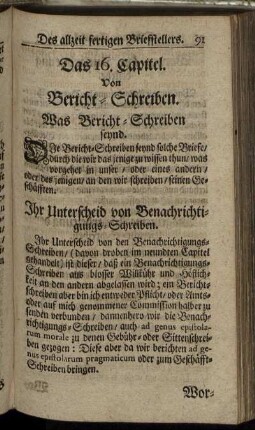 Des allzeit fertigen Briefstellers. 91
Das 16. Capitel.
Von
Bericht-Schreiben.
Was Bericht-Schreiben
seynd.
Die Bericht-Schreiben seynd solche Briefe/
durch die wir das jenige zu wissen thun/ was
vorgehet in unser/ oder eines andern/
oder des jenigen/ an den wir schreiben/ seinen Ge-
schäfften.
Ihr Unterscheid von Benachrichti-
gungs-Schreiben.
Ihr Unterscheid von den Benachrichtigungs-
Schreiben/ (davon droben im neundten Capitel
gehandelt) ist dieser/ daß ein Benachrichtigungs-
Schreiben aus blosser Willkühr und Höflich-
keit an den andern abgelassen wird; ein Bericht-
schreiben aber bin ich entweder Pflicht/ oder Amts-
oder auf mich genommener Commission halber zu
senden verbunden/ dannenhero wie die Benach-
richtigungs-Schreiben/ auch ad genus epistola-
rum morale zu denen Gebühr- oder Sittenschrei-
ben gezogen: Diese aber da wir berichten ad ge-
nus epistolarum pragmaticum oder zum Geschäfft-
Schreiben bringen.
Wor-